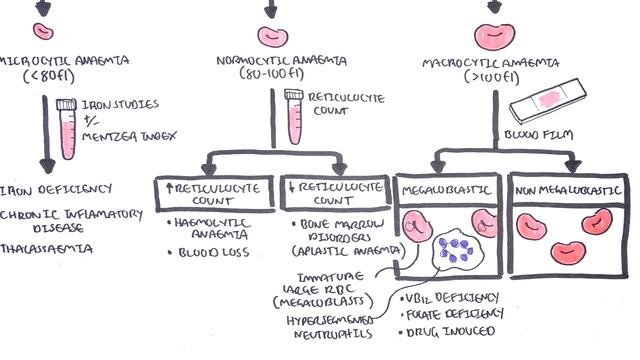 MICROCYTIC ANAEMIA
(<80fl)
IRON STUDIES
+/-
MENTZER INDEX
IRON DEFICIENCY
CHRONIC INFLAMATORY
DISEASE
THALASSAEMIA
NORMOCYTIC ANAEMIA
(80-100fl)
RETICULOCYTE
COUNT
↑ RETICULOCYTE
COUNT
• HAEMOLYTIC
ANAEMIA
• BLOOD LOSS
↓ RETICULOCYTE
COUNT
• BONE MARROW
DISORDERS
(APLASTIC ANAEMIA)
MACROCYTIC ANAEMIA
(>100fl)
BLOOD FILM
MEGALOBLASTIC
NON MEGALOBLASTIC
IMMATURE
LARGE RBC
(MEGALOBLASTS)
HYPERSEGMENTED
NEUTROPHILS
• VB12 DEFICIENCY
• FOLATE DEFICIENCY
• DRUG INDUCED